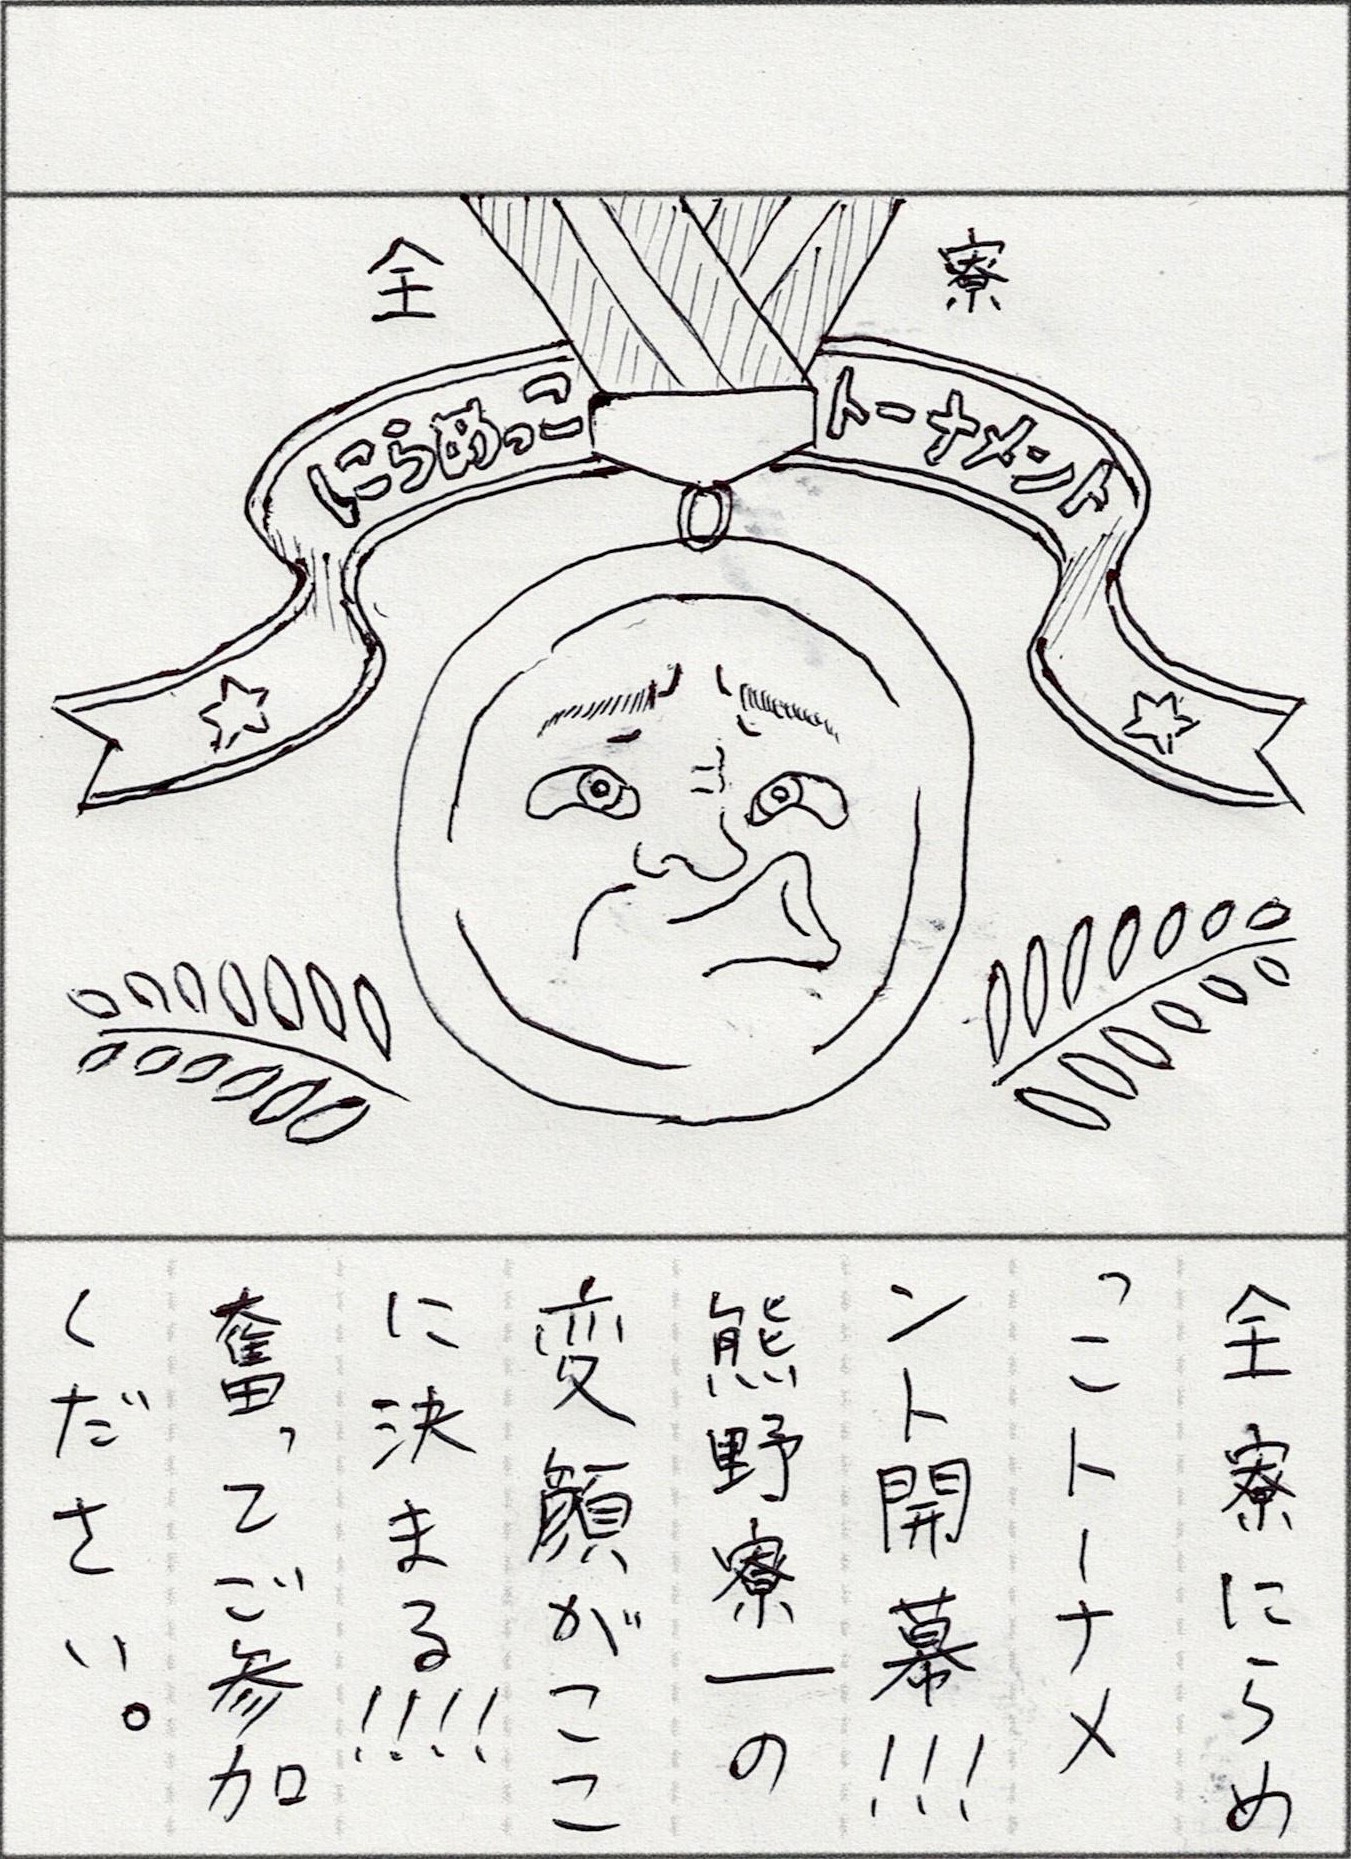 全寮
にらめっこ
トーナメント
全寮にらめ
っこトーナメ
ント開幕!!!
熊野寮一の
変顔がここ
に決まる!!!!
奮ってご参加
ください。